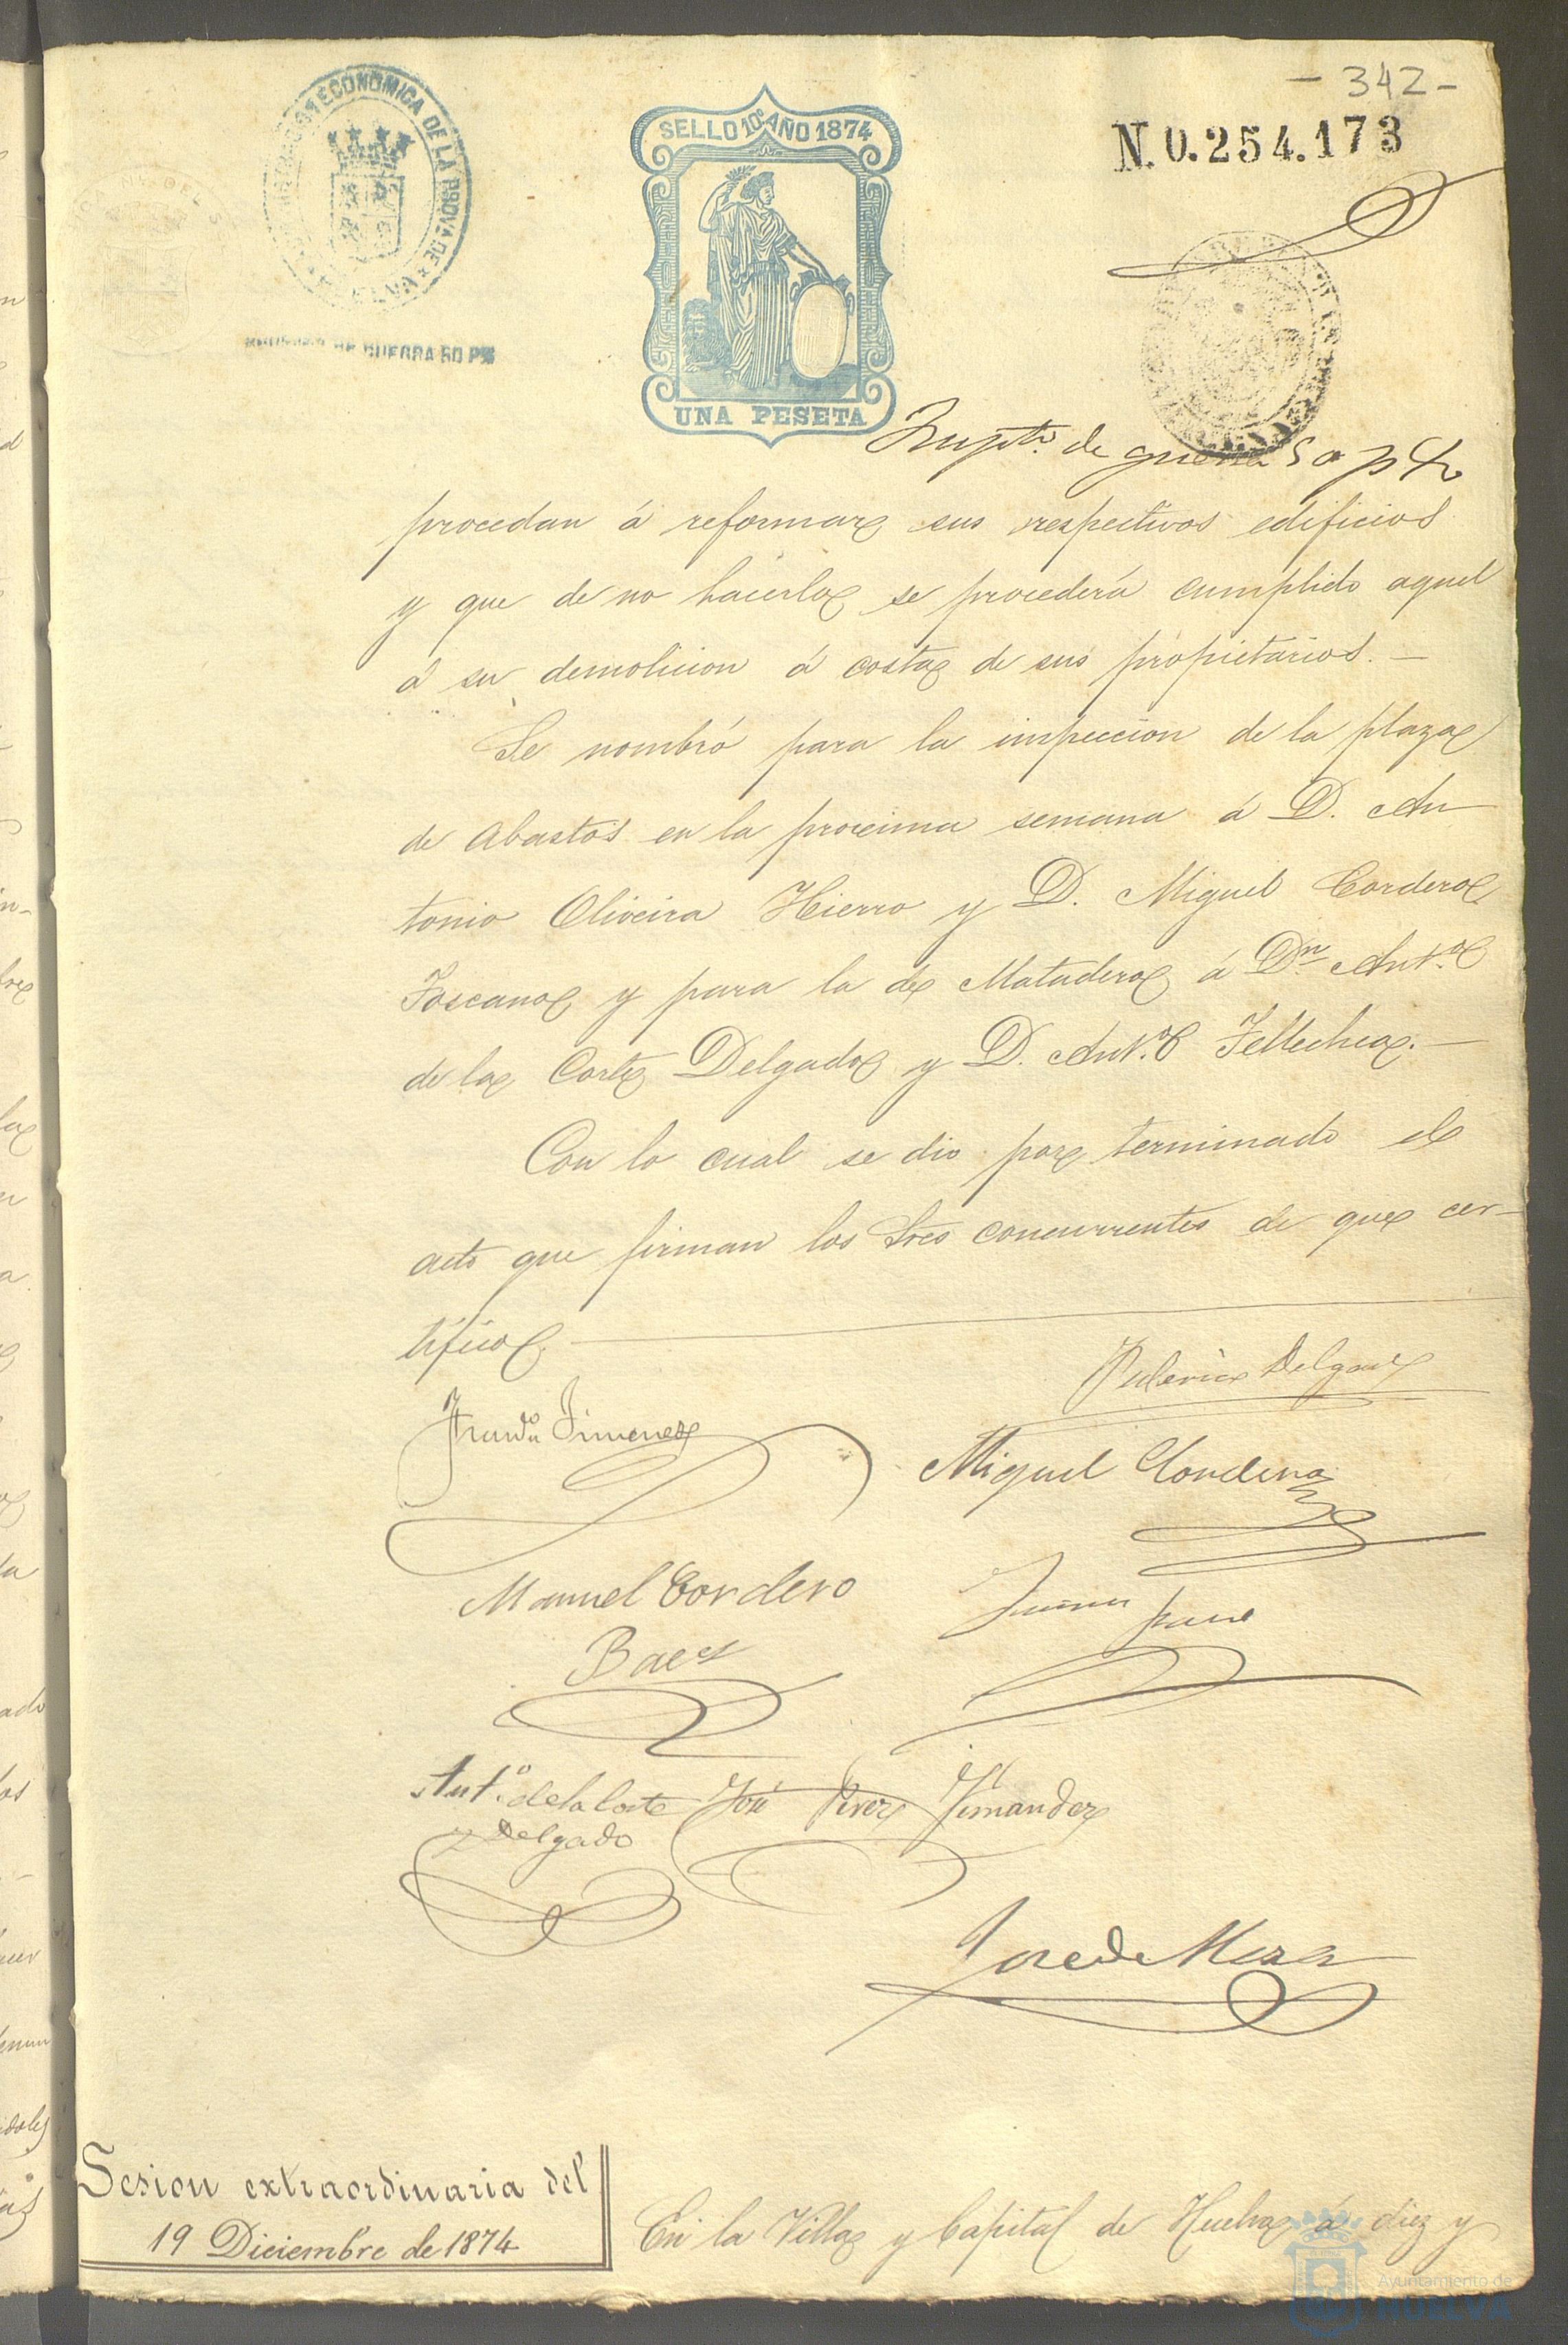 - 342 -
N. 0.254.173
ECONOMICA DE LA PROVA DE
SELLO 10º AÑO 1874
UNA PESETA
DE GUERRA 50 P%
Impto. de guerra 50 p%
procedan á reformar sus respectivos edificios
y que de no hacerlo se procederá cumplido aquel
á su demolicion á costa de sus propietarios. —
Se nombró para la inspeccion de la plaza
de Abastos en la procsima semana á D. An
tonio Oliveira Hierro y D. Miguel Cordero
Toscano y para la de Matadero á Dn. Anto.
de la Corte Delgado y D. Anto. Tellechea. —
Con lo cual se dio por terminado el
acto que firman los Sres concurrentes de que cer-
tifico
Federico Delgado
Jimenez
Miguel Cordero
Manuel Cordero
Baes
Anto. de la Corte
y Delgado
José Perez Fernandez
Jose de Mesa
Sesion extraordinaria del
19 Diciembre de 1874
En la Villa y Capital de Huelva á diez y
Ayuntamiento de
HUELVA